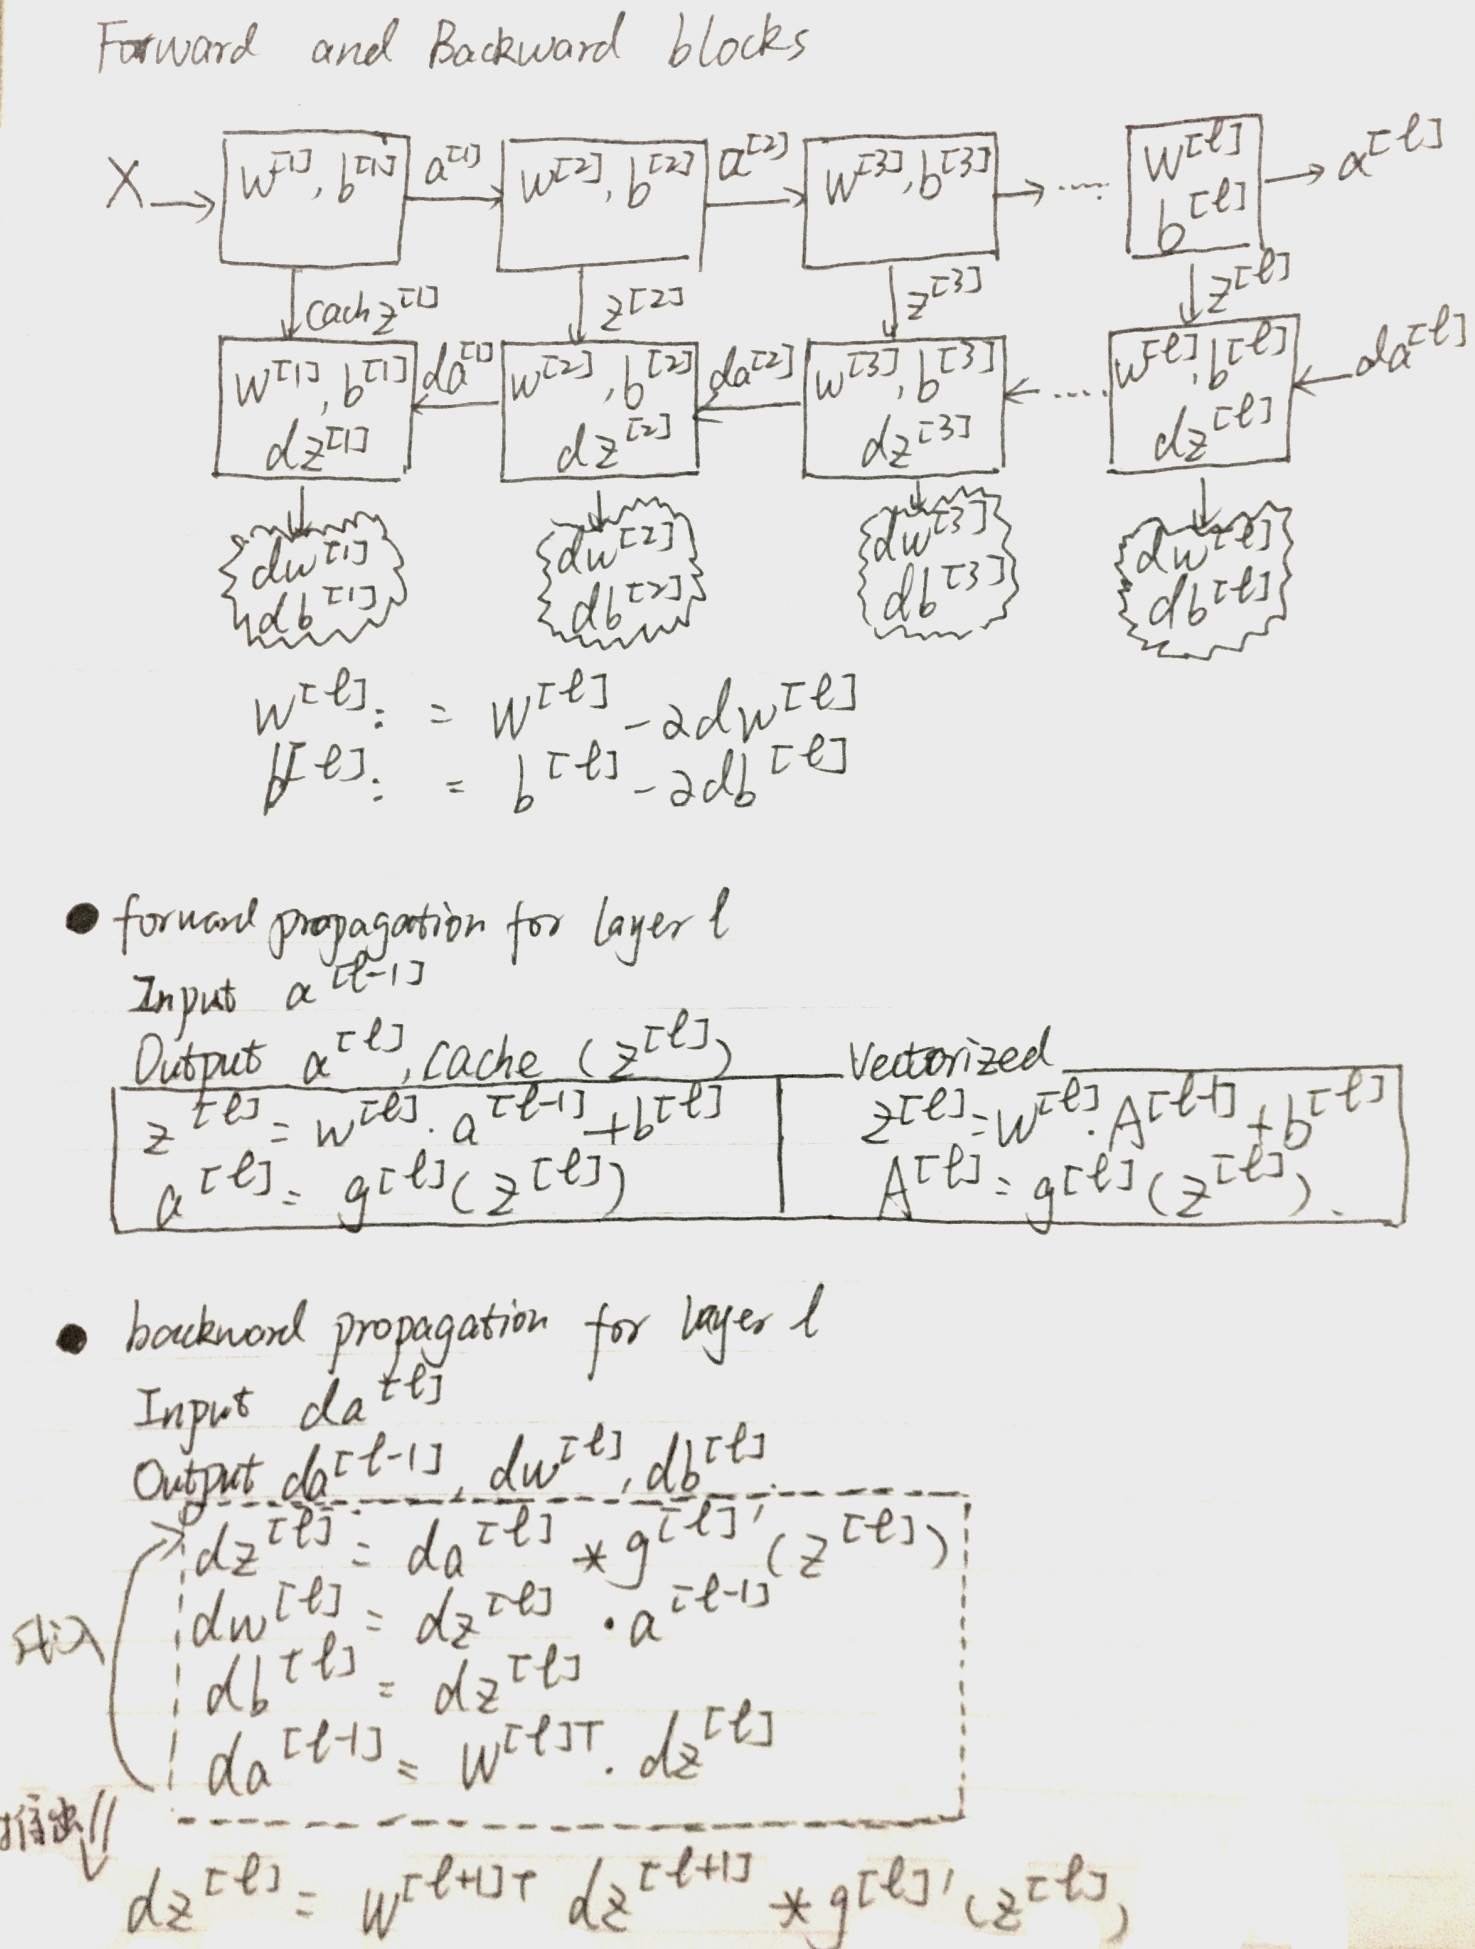 Forward and Backward blocks
X → w^[1], b^[1] a^[1] → w^[2], b^[2] a^[2] → w^[3], b^[3] → ····· w^[l] b^[l] → a^[l]
cach z^[1] z^[2] z^[3] z^[l]
w^[1], b^[1] da^[1] w^[2], b^[2] da^[2] w^[3], b^[3] ← ····· w^[l], b^[l] ← da^[l]
dz^[1] dz^[2] dz^[3] dz^[l]
dw^[1] dw^[2] dw^[3] dw^[l]
db^[1] db^[2] db^[3] db^[l]
w^[l] := w^[l] - αdw^[l]
b^[l] := b^[l] - αdb^[l]
● forward propagation for layer l
Input a^[l-1]
Output a^[l], cache (z^[l])
z^[l] = w^[l] · a^[l-1] + b^[l]
a^[l] = g^[l](z^[l])
Vectorized
z^[l] = w^[l] · A^[l-1] + b^[l]
A^[l] = g^[l](z^[l]).
● backward propagation for layer l
Input da^[l]
Output da^[l-1], dw^[l], db^[l]
dz^[l] = da^[l] * g^[l]'(z^[l])
dw^[l] = dz^[l] · a^[l-1]
db^[l] = dz^[l]
da^[l-1] = w^[l]T · dz^[l]
代入
推出
dz^[l] = w^[l+1]T dz^[l+1] * g^[l]'(z^[l])